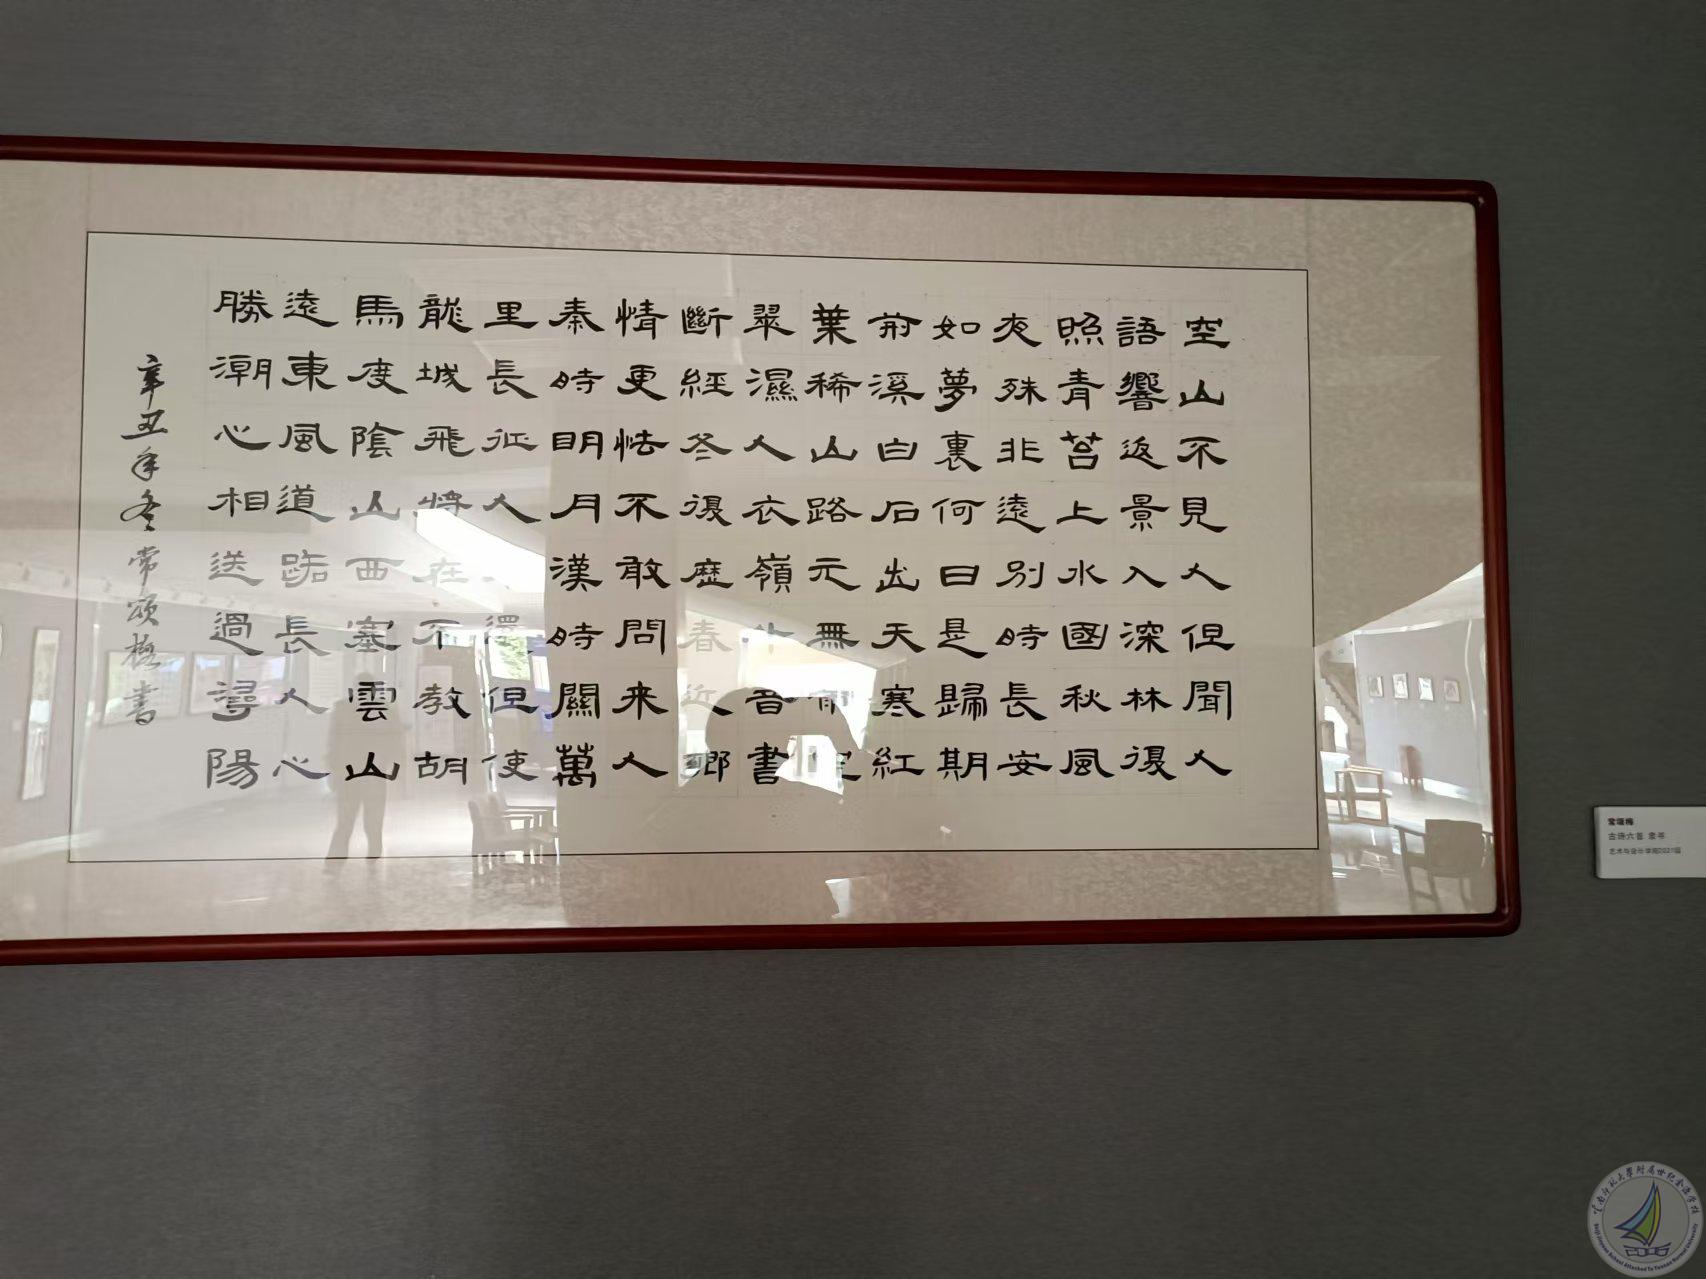 空山不見人但聞人
語響返景入深林復
照青苔上水國秋風
夜殊非遠別時長安
如夢裏何日是歸期
前溪白石出天寒紅
葉稀山路元無雨空
翠濕人衣嶺外音書
斷經冬復歷春近鄉
情更怯不敢問来人
秦時明月漢時關萬
里長征人還但使
龍城飛將在不教胡
馬度陰山西塞雲山
遠東風道路長人心
勝潮心相送過潯陽
辛丑年冬常頌梅書
古诗六首 隶书
艺术与设计学院2021届
云南师范大学附属世纪金源学校
Shiji Jinyuan School Attached To Yunnan Normal University